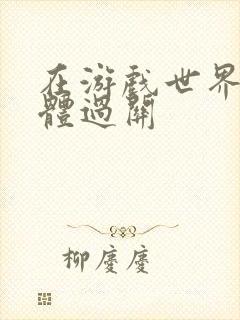 在游戏世界
體過關
柳慶慶